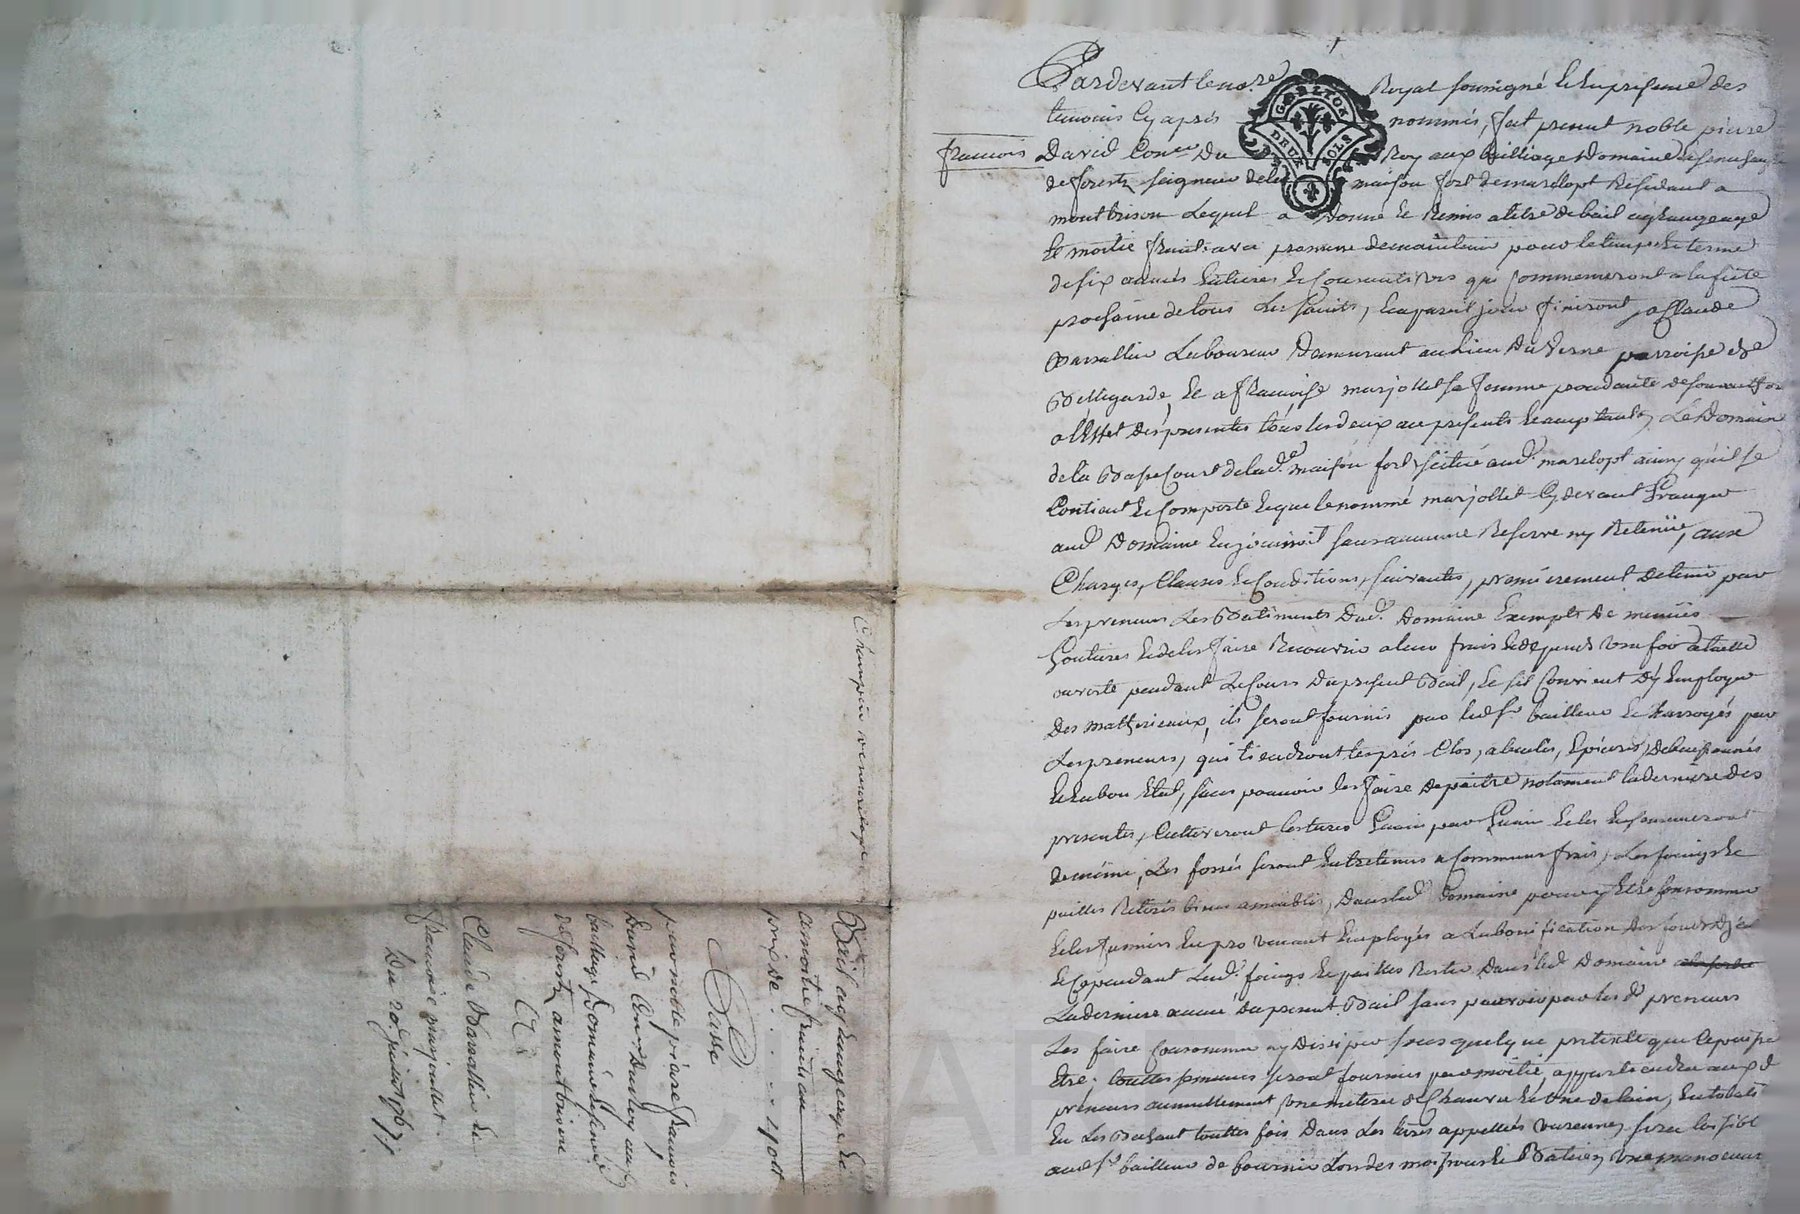 Pardevant le no.re Royal soussigné & en presence des
temoins cy apres nommés, fut present noble pierre
françois David Con.er Du Roy aux bailliage Domaine & senechaussée
de forestz seigneur de la maison fort de marclopt Residant a
montbrison Lequel a donné & Remis a titre de bail a grangeage
& moitié fruits avec promesse de maintenir pour le temps & terme
de six années Entieres & Consecutives qui Commenceront a la fête
prochaine de tous Les saints, & a pareil jour finiront, a Claude
Barrallier Laboureur Demeurant au Lieu Du Verne parroisse de
Bellegarde, & a françoise marjollet sa femme procedante de son autorité
a l'Effet des presentes tous les deux icy presents & acceptants, Le Domaine
de la Basse Cour de lad.e maison fort scitué aud. marclopt ainsy qu'il se
Contient & Comporte & que le nommé marjollet Cy devant Granger
aud. Domaine En jouissoit sans aucune Reserve ny Retenüe, aux
Charges, Clauses & Conditions suivantes, premierement de tenir par
Les preneurs Les Batiments Dud. Domaine Exempts de menües
Goutieres & de les faire Recouvrir a leur frais & depends une fois a taille
ouverte pendant Le Cours Du present Bail, & s'il Convient d'y Employer
Des matheriaux, ils seront fournis par led. s.r bailleur & charroyés par
Les preneurs, qui tiendront les prés Clos, abreulés, Epierrés,
& En bon Etat, sans pouvoir les faire depaitre notament la derniere des
presentes, Cultiveront les terres Guain par Guain & les Ensemenceront
de même, Les fossés seront Entretenus a Communs frais, Les foings &
pailles Retirés bien amiablés, Dans led. Domaine pour y Etre Consommés
& les fumiers En provenant Employés a La bonification des fonds d'jcel
& Cependant Lesd. foings & pailles Rester Dans led. Domaine
La derniere année du present Bail sans pouvoir par les d. preneurs
Les faire Consommer ny Dissiper sous quelque pretexte que Ce puisse
Etre; touttes semences seront fournies par moitié, appartiendra aux d.
preneurs annuellement une meterée de Chanvre & Une de lain,
En Les Balant touttes fois Dans Les terres appellées varennes,
aud. s.r bailleur de fournir Lors des moissons & Batiers, Une manoeuvre
Champier en marclopt
Bail a grangeage &
a moitié fruits au
prix de . . . . . 190ll
Passé
par noble pierre françois
David Con.er Du Roy au
bailliage Domaine & senech.ée
de forestz a montbrison
A
Claude Barrallier &
françoise marjollet.
Du 20. juin 1767